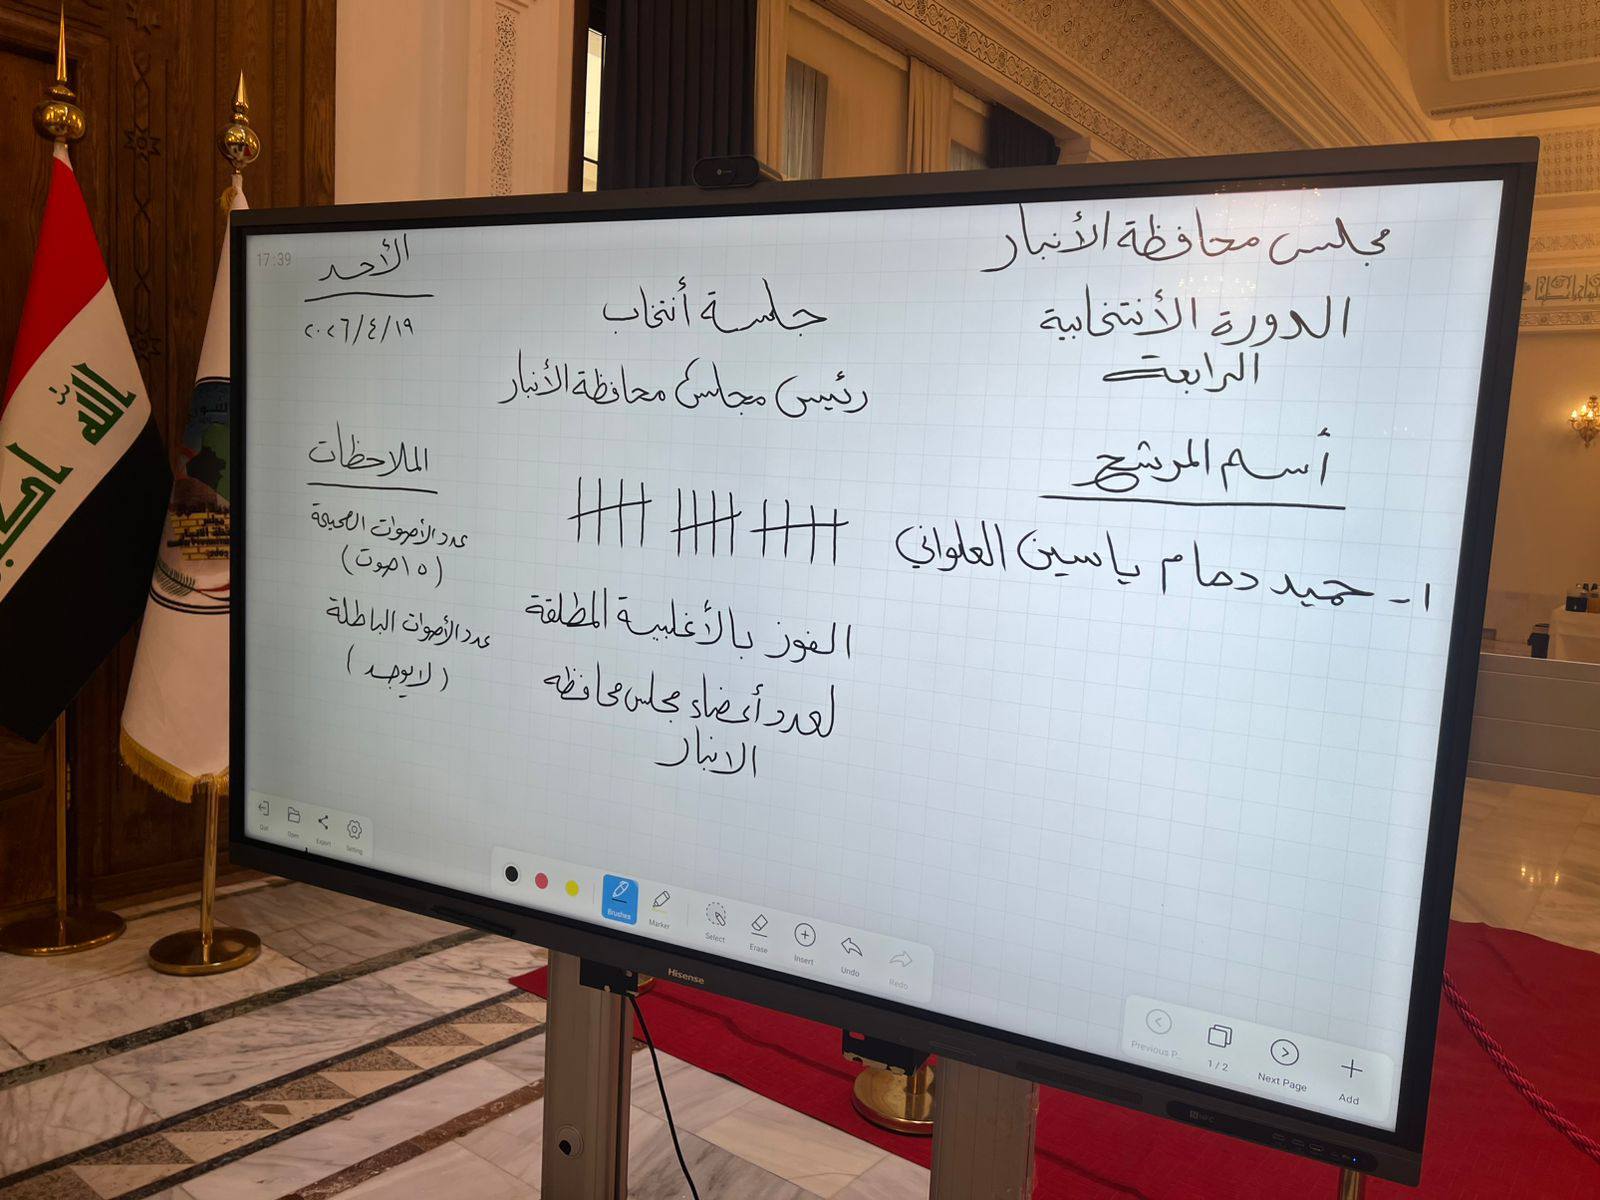 مجلس محافظة الأنبار
الدورة الأنتخابية
الرابعة
جلسة أنتخاب
رئيس مجلس محافظة الأنبار
الأحد
٢٠٢٦/٤/١٩
17:39
أسم المرشح
١- حميد دهام ياسين العلواني
الفوز بالأغلبية المطلقة
لعدد أعضاء مجلس محافظة
الانبار
الملاحظات
عدد الأصوات الصحيحة
(١٥ صوت)
عدد الأصوات الباطلة
(لا يوجد)
الله
Quit Open Export Setting
Brushes Marker Select Erase Insert Undo Redo
Previous P...
1/2
Next Page
Add
Hisense